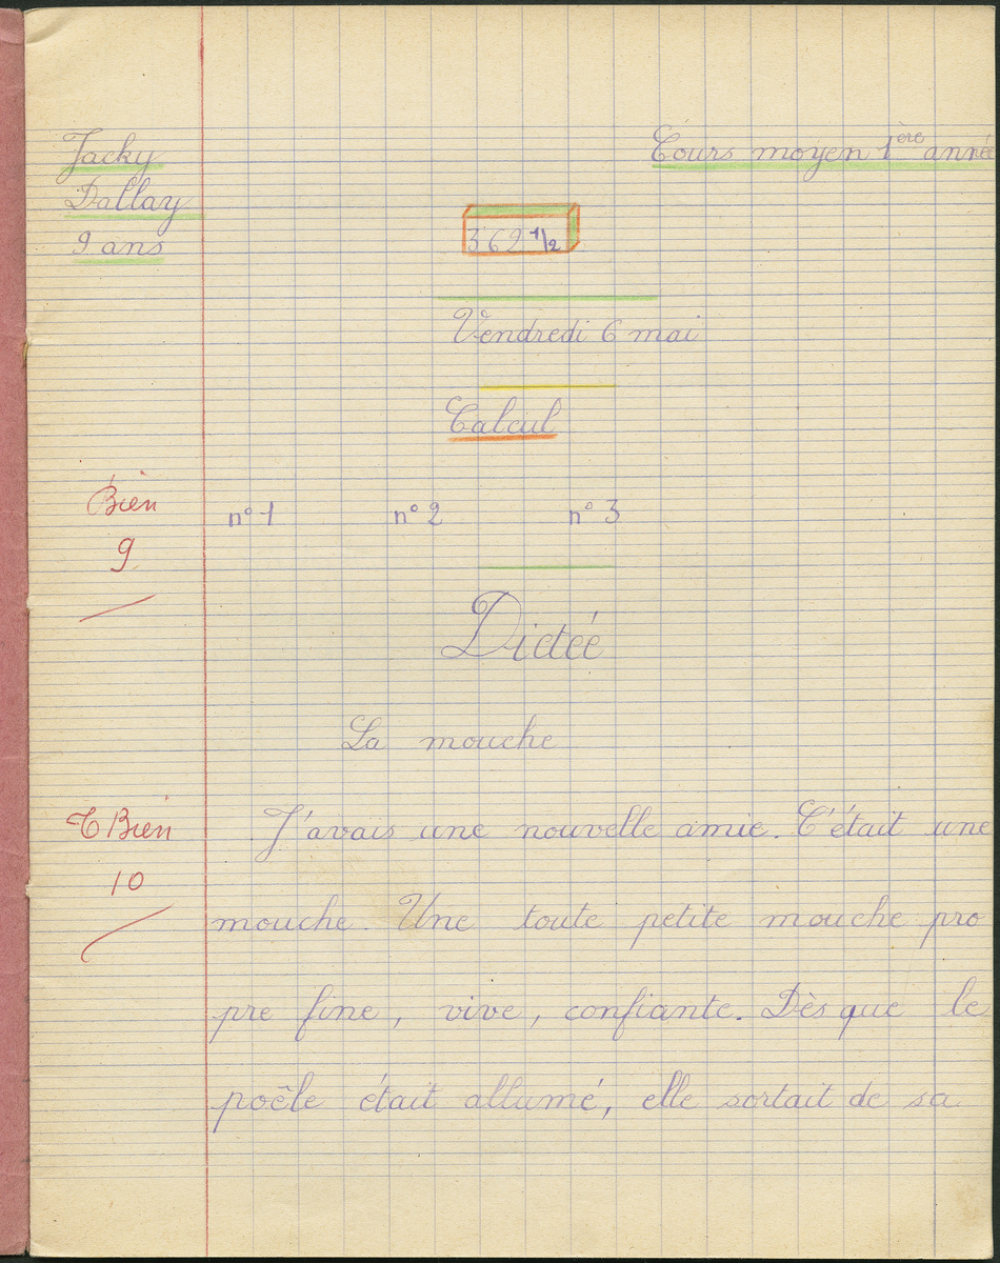 Jacky
Cours moyen 1ère année
Dallay
9 ans
362 1/2
Vendredi 6 mai
Calcul
Bien
9
n° 1 n° 2 n° 3
Dictée
La mouche
T Bien
10
J'avais une nouvelle amie. C'était une
mouche. Une toute petite mouche pro
pre fine, vive, confiante. Dès que le
poêle était allumé, elle sortait de sa